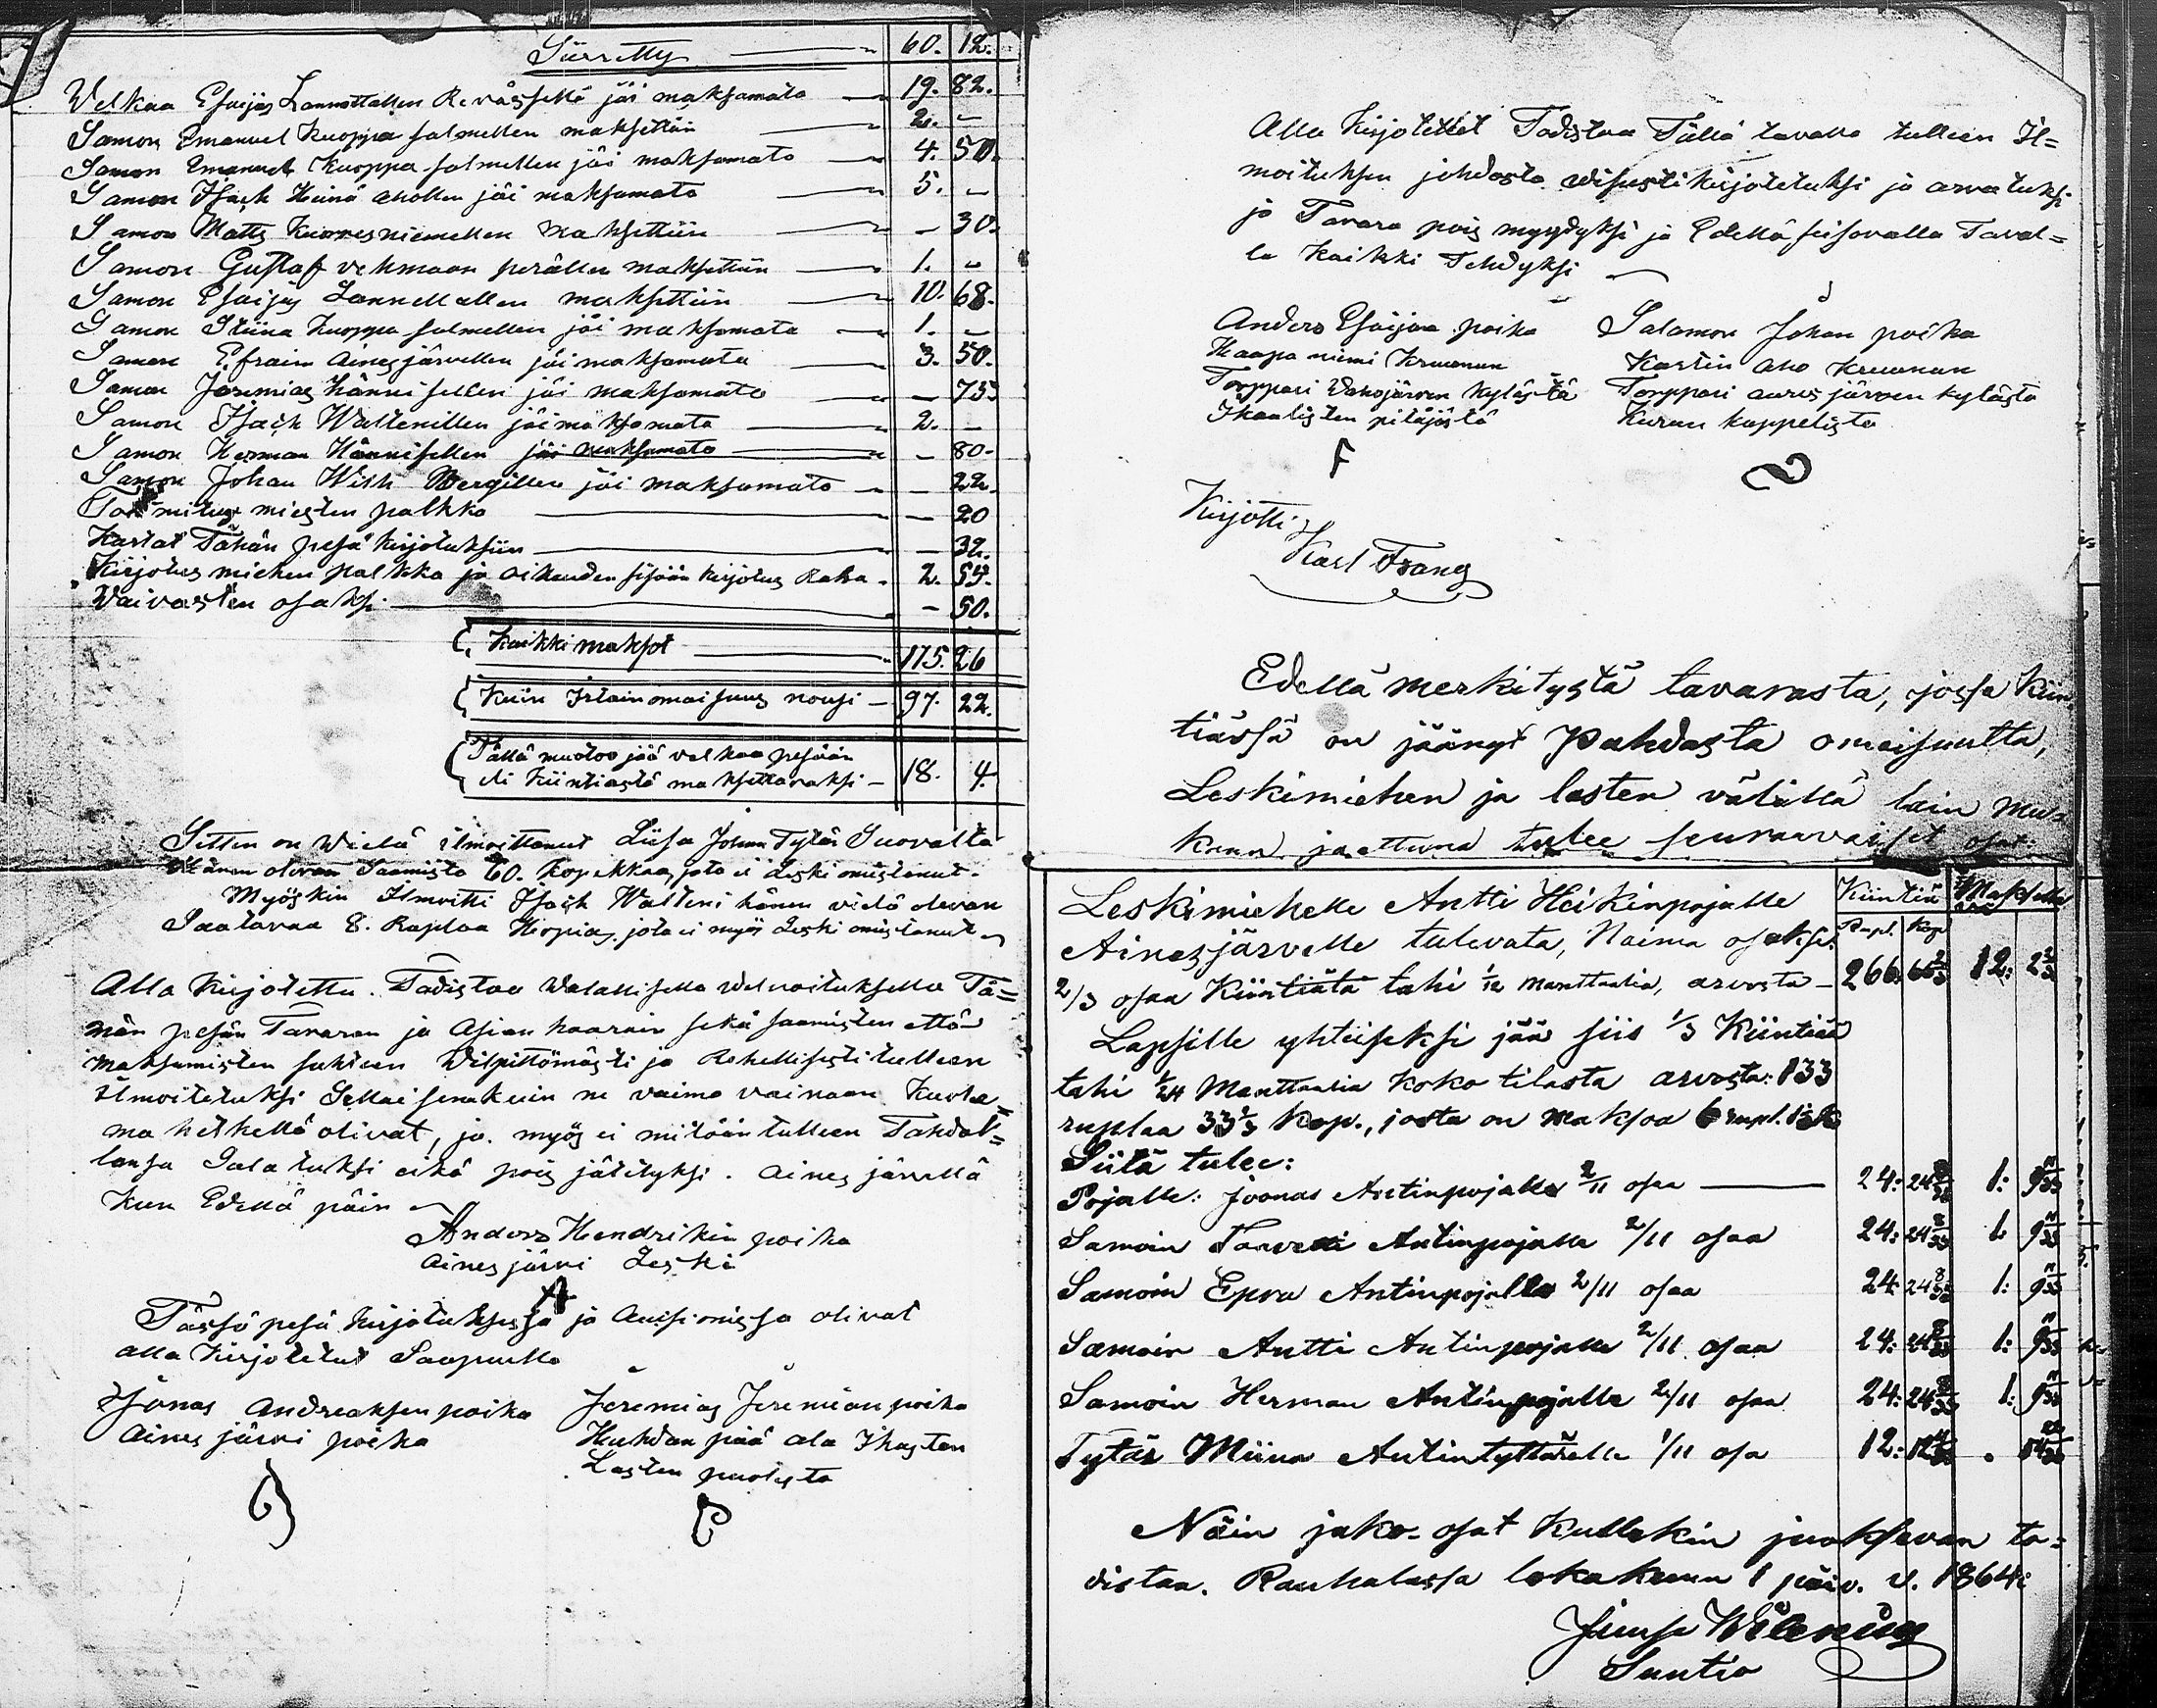 Siirretty 60. 12.
Welkaa Esaijas Lannettallen Revåssellä jäi maksamata 19. 82.
Samon Emanuel Kuoppa salmellen maksettiin 2. –
Samon Emanuel Kuoppa salmellen jäi maksamata 4. 50.
Samon Isack Heinä ahollen jäi maksamata 5. –
Samon Matts Kuoresniemellen maksettiin – 30.
Samon Gustaf vehmaan perällen maksettiin 1. –
Samon Esaijas Lannettallen maksettiin 10. 68.
Samon Stiina Kuoppa salmellen jäi maksamata 1. –
Samon Efraim Ainesjärvellen jäi maksamata 3. 50.
Samon Jeremias Hännisellen jäi maksamata – 75.
Samon Isack Waltenillen jäi maksamata 2. –
Samon Herman Hännisellen jäi maksamata – 80.
Samon Johan Wergillen jäi maksamato – 22.
Toimitus miesten palkka – 20
Kartat Tähän pesä kirjotuksiin – 32.
Kirjotus miehen palkka ja oikeuden sisään kirjotus Raha. 2. 55.
Waivasten osaksi – 50.
Kaikki maksot 115. 26
Kuin Irtainomaisuus nousi – 97. 22.
Tällä muotoo jää velkaa pesään
eli Kiintiästä maksettavaksi – 18. 4.
Sitten on Wielä ilmoittanut Liisa Johan Tytär Suovalta
Hänen olevan Saamista 60. Kopekkaa, jota ei Leski omistanut.
Myöskin Ilmoitti Isack Walteni hänen vielä olevan
Saatavaa 8. Ruplaa Hopias, jota ei myös Leski omistanut
Alla Kirjotettu. Todistaa Walallisella Welvoituksella Tä=
män pesän Tavaran ja Asian haarain sekä saamisten että
maksamisten suhteen Wilpittömästi ja Rehellisesti tulleen
ilmoitetuksi Sellaisena kuin ne vaimo vainaan Kuole=
ma hetkellä olivat, ja myös ei mitään tulleen Tahdol=
lansa Salatuksi eikä pois jätetyksi. Aines järvellä
Kun Edellä päin
Anders Hendrikin poika
Ainesjärvi Leski
Tässä pesä kirjotuksessa ja Auksionissa olivat
alla Kirjotetut Saapuulla
Jonas Andreaksen poika
Aines järvi poika
Jeremias Jeremian poika
Huhdan pää ala Ikasten
Lasten puolesta
Alla Kirjotettet Todistaa Tällä tavalla tulleen Il=
moituksen johdosta Wisusti kirjotetuksi ja arvatuksi
ja Tavara pois myydyksi ja Edellä seisovalla Taval=
la Kaikki Tehdyksi
Anders Esaijaa poika
Haapa niemi Kruunun
Torppari Wahojärven Kylästä
Ikaalisten pitäjästä
Salamon Johan poika
Kortin aho Kruunun
Torppari aures järven kylästä
Kurun kappelista
Kirjotti
Karl Frang
Edellä merkitystä tavarasta, jossa kiin
tiässä on jäänyt Pahdasta omaisuutta,
Leskimiehen ja lasten välillä lain mu=
kaan jaettuna tulee seuraavaiset osat:
Kiintiä Maksetta
Rupl. Kop.
Leskimiehelle Antti Heikinpojalle
Ainesjärvelle tulevata, Naima osaksi
2/3 osaa Kiintiätä tahi 1/12 Manttaalia, arvosta – 266: 66 2/3 12: 2 2/3
Lapsille yhteiseksi jää siis 1/3 Kiintiää
tahi 1/24 Manttaalia koko tilasta arvosta: 133
ruplaa 33 1/3 Kop., josta on maksoa 6 rupl. 1 1/3 k
Siitä tulee:
Pojalle: Joonas Antinpojalle 2/11 osaa 24: 24 8/33 1: 9 11/33
Samoin Taavetti Antinpojalle 2/11 osaa 24: 24 8/33 1: 9 11/33
Samoin Epra Antinpojalle 2/11 osaa 24: 24 8/33 1: 9 11/33
Samoin Antti Antinpojalle 2/11 osaa 24: 24 8/33 1: 9 11/33
Samoin Herman Antinpojalle 2/11 osaa 24: 24 8/33 1: 9 11/33
Tytär Miina Antintyttärelle 1/11 osa 12: 12 4/33
Näin jako-osat kullekin juoksevan to=
distaa. Rauhalassa lokakuun 1 päiv. v. 1864:
Juuse Wilenius
Suntio